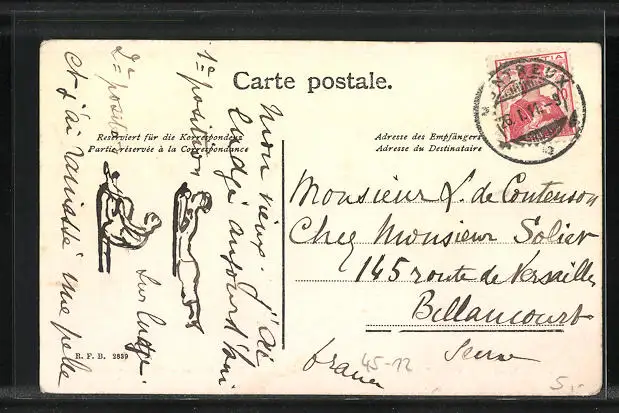 Carte postale.
Reserviert für die Korrespondenz
Partie réservée à la Correspondance
Adresse des Empfängers
Adresse du Destinataire
MONTREUX
Monsieur L. de Contenson
Chez Monsieur Solier
145 route de Versailles
Billancourt
Seine
france
45-12
5.-
Mon vieux. J'ai
lugé aujourd'hui
1e position
2e position
sur luge.
et j'ai ramassé une pelle
R. F. B. 2859